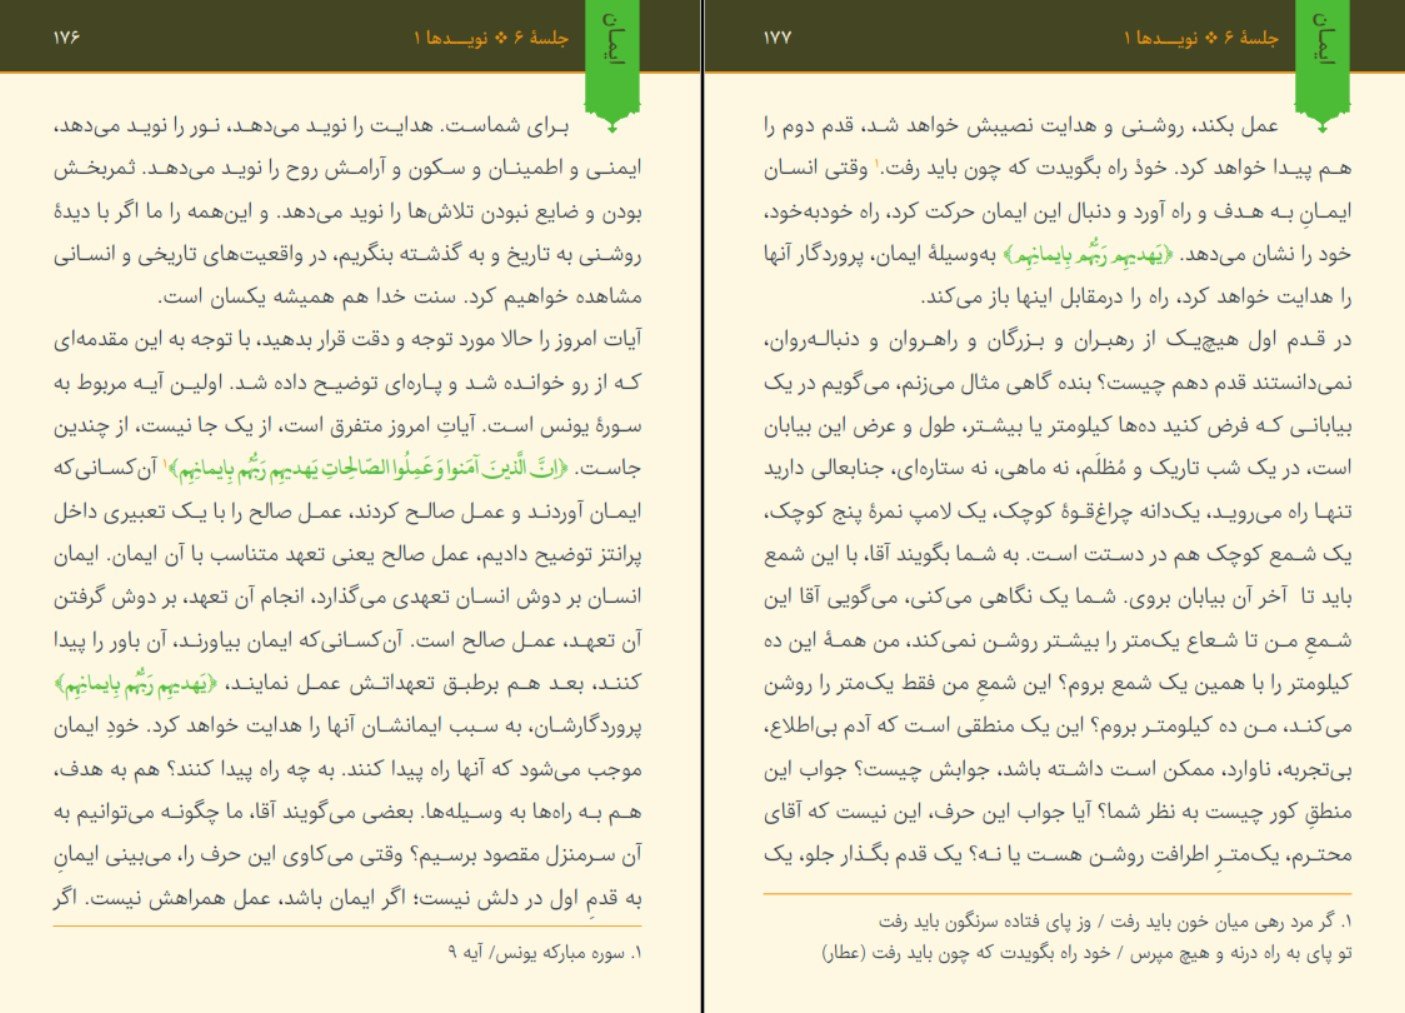 ۱۷۶
جلسهٔ ۶ ❖ نویـــدها ۱
ایمـان
بـرای شماسـت. هدایـت را نویـد می‌دهـد، نـور را نویـد می‌دهد،
ایمنـی و اطمینـان و سـکون و آرامـش روح را نویـد می‌دهـد. ثمربخـش
بودن و ضایع نبودن تلاش‌ها را نوید می‌دهد. و این‌همه را ما اگر با دیدهٔ
روشـنی به تاریخ و به گذشـته بنگریم، در واقعیت‌های تاریخی و انسـانی
مشاهده خواهیم کرد. سنت خدا هم همیشه یکسان است.
آیات امروز را حالا مورد توجه و دقت قرار بدهید، با توجه به این مقدمه‌ای
کـه از رو خوانـده شـد و پـاره‌ای توضیـح داده شـد. اولیـن آیـه مربوط به
سـورهٔ یونس اسـت. آیاتِ امروز متفرق است، از یک جا نیست، از چندین
جاسـت. ﴿اِنَّ الَّذینَ آمَنوا وَ عَمِلُوا الصّالِحاتِ یَهدیهِم رَبُّهُم بِایمانِهِم﴾۱ آن‌کسـانی‌که
ایمـان آوردنـد و عمـل صالـح کردند، عمـل صالح را با یـک تعبیری داخل
پرانتز توضیح دادیم، عمل صالح یعنی تعهد متناسب با آن ایمان. ایمان
انسـان بر دوش انسـان تعهدی می‌گذارد، انجام آن تعهد، بر دوش گرفتن
آن تعهـد، عمـل صالح است. آن‌کسـانی‌که ایمان بیاورنـد، آن باور را پیدا
کننـد، بعـد هـم برطبـق تعهداتـش عمـل نماینـد، ﴿یَهدیهِم رَبُّهُم بِایمانِهِم﴾
پروردگارشـان، به سـبب ایمانشـان آنها را هدایت خواهد کرد. خودِ ایمان
موجب می‌شود که آنها راه پیدا کنند. به چه راه پیدا کنند؟ هم به هدف،
هـم بـه راه‌ها به وسـیله‌ها. بعضی می‌گویند آقا، ما چگونـه می‌توانیم به
آن سـرمنزل مقصود برسـیم؟ وقتی می‌کاوی این حرف را، می‌بینی ایمانِ
به قدمِ اول در دلش نیست؛ اگر ایمان باشد، عمل همراهش نیست. اگر
۱. سوره مبارکه یونس/ آیه ۹
۱۷۷
جلسهٔ ۶ ❖ نویـــدها ۱
ایمـان
عمل بکند، روشـنی و هدایت نصیبش خواهد شـد، قدم دوم را
هـم پیـدا خواهد کرد. خودْ راه بگویدت که چون باید رفت.۱ وقتی انسـان
ایمـانِ بـه هـدف و راه آورد و دنبال این ایمان حرکت کرد، راه خودبه‌خود،
خود را نشان می‌دهد. ﴿یَهدیهِم رَبُّهُم بِایمانِهِم﴾ به‌وسیلهٔ ایمان، پروردگار آنها
را هدایت خواهد کرد، راه را درمقابل اینها باز می‌کند.
در قـدم اول هیچ‌یـک از رهبـران و بـزرگان و راهـروان و دنبالـه‌روان،
نمی‌دانستند قدم دهم چیست؟ بنده گاهی مثال می‌زنم، می‌گویم در یک
بیابانـی کـه فرض کنید ده‌ها کیلومتر یا بیشـتر، طول و عرض این بیابان
است، در یک شب تاریک و مُظلَم، نه ماهی، نه ستاره‌ای، جنابعالی دارید
تنهـا راه می‌رویـد، یک‌دانه چراغ‌قـوهٔ کوچک، یک لامپ نمرهٔ پنج کوچک،
یک شـمع کوچک هم در دسـتت اسـت. به شـما بگویند آقا، با این شمع
باید تا آخر آن بیابان بروی. شـما یک نگاهی می‌کنی، می‌گویی آقا این
شـمعِ مـن تا شـعاع یک‌متر را بیشـتر روشـن نمی‌کند، من همـهٔ این ده
کیلومتر را با همین یک شمع بروم؟ این شمعِ من فقط یک‌متر را روشن
می‌کنـد، مـن ده کیلومتـر بروم؟ این یک منطقی اسـت که آدم بی‌اطلاع،
بی‌تجربه، ناوارد، ممکن اسـت داشـته باشد، جوابش چیست؟ جواب این
منطقِ کور چیست به نظر شما؟ آیا جواب این حرف، این نیست که آقای
محتـرم، یک‌متـرِ اطرافت روشـن هسـت یا نـه؟ یک قدم بگـذار جلو، یک
۱. گر مرد رهی میان خون باید رفت / وز پای فتاده سرنگون باید رفت
تو پای به راه درنه و هیچ مپرس / خود راه بگویدت که چون باید رفت (عطار)